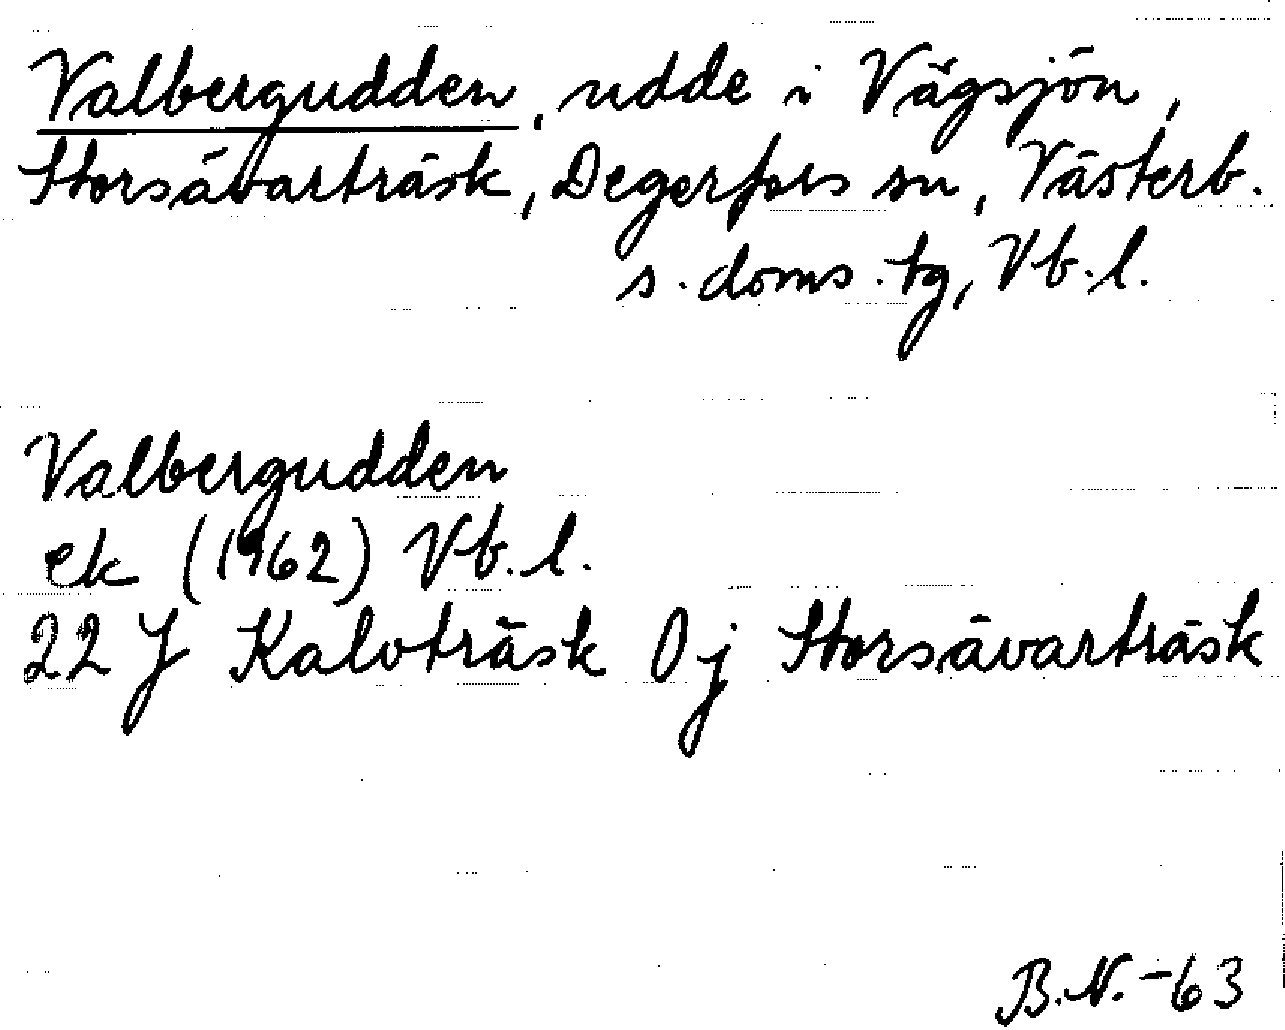 Valbergudden, udde i Vägsjön,
Storsävarträsk, Degerfors sn, Västerb.
s. doms. tg, Vb. l.
Valbergudden
ek (1962) Vb. l.
22 J Kalvträsk 0j Storsävarträsk
B.N. -63